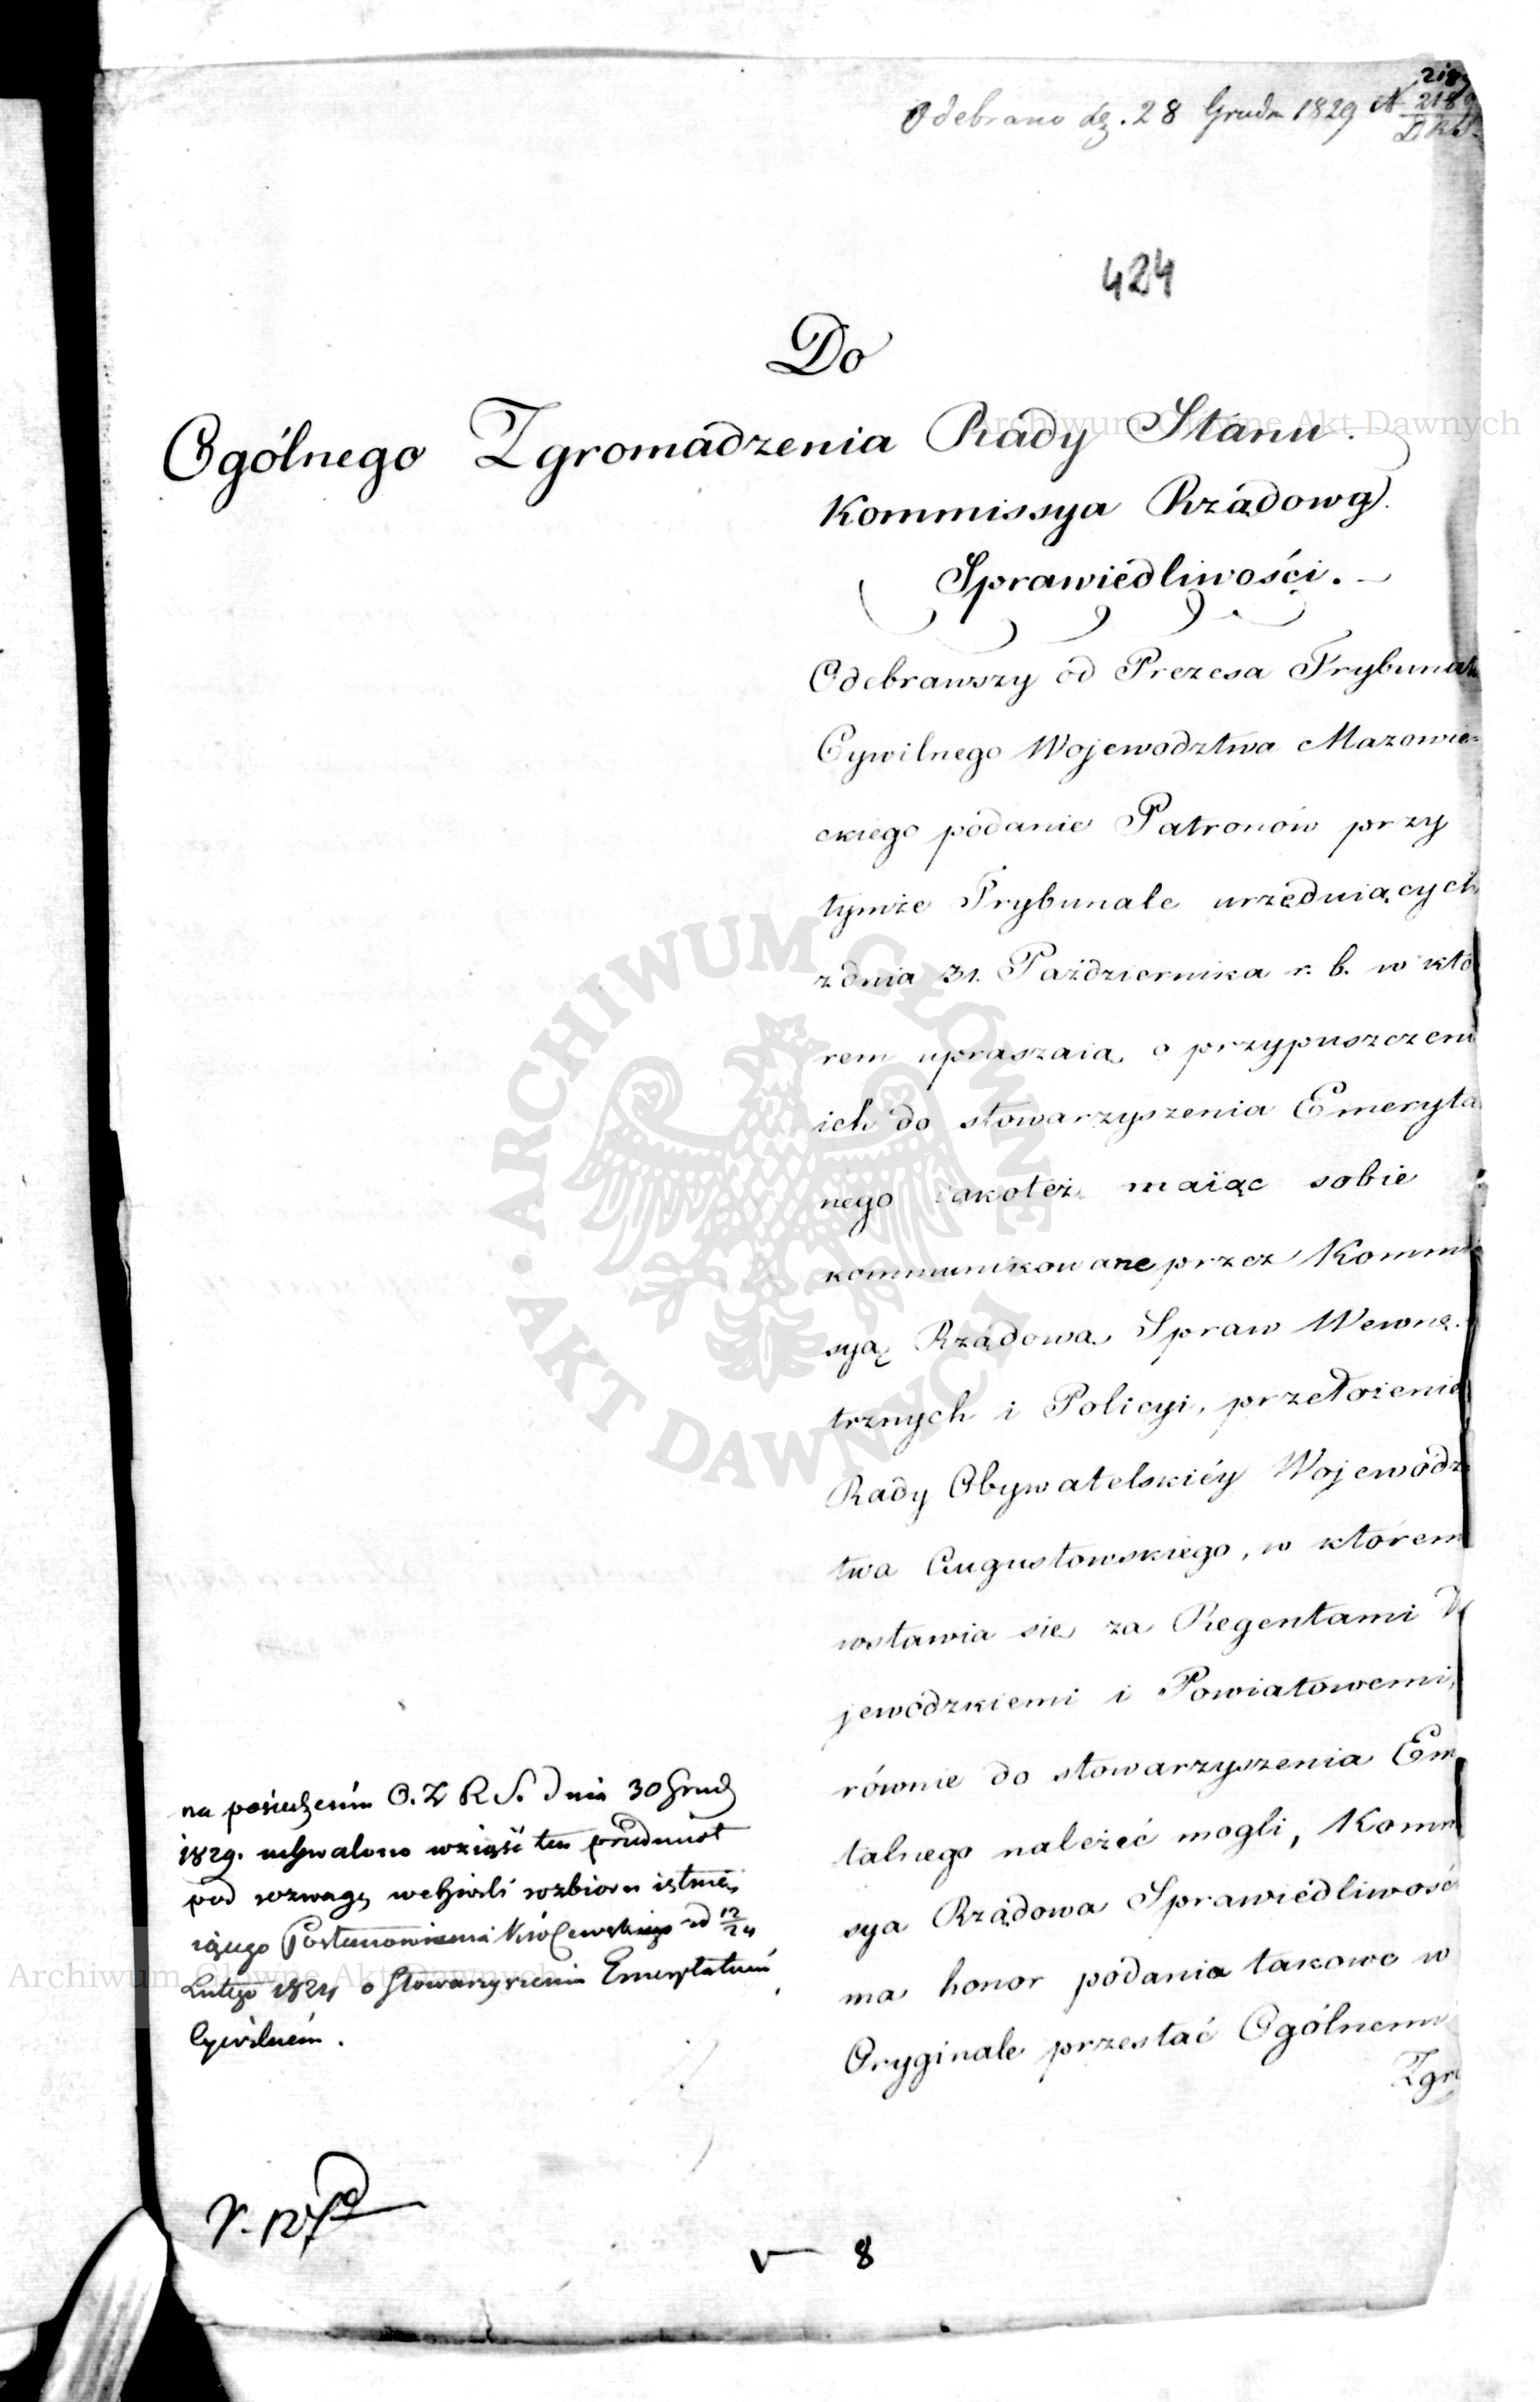 Odebrano dz. 28 Grudn 1829 N 2189
2189
424
Do
Ogólnego Zgromadzenia Rady Stanu.
Kommissya Rządowa
Sprawiedliwości.
Odebrawszy od Prezesa Trybunału
Cywilnego Wojewodztwa Mazowie-
ckiego podanie Patronów przy
tymże Trybunale urzęduiących
z dnia 31. Października r. b. w któ
rem upraszaią o przypuszczeni
ich do stowarzyszenia Emeryta
nego iakoteż maiąc sobie
kommunikowane przez Kommis
syą Rządową Spraw Wewnę.
trznych i Policyi, przełożenie
Rady Obywatelskiéy Wojewódz
twa Augustowskiego, w którem
wstawia się za Regentami
jewódzkiemi i Powiatowemi,
równie do stowarzyszenia Em
talnego należéć mogli, Komm
sya Rządowa Sprawiedliwośc
ma honor podania takowe w
Oryginale przesłać Ogólnemu
Zgro
na posiedzeniu O. Z R S. dnia 30 Grud
1829. uchwalono wziąść ten przedmiot
pod rozwagę w chwili rozbioru istnie
iącego Postanowienia Królewskiego od 12/24
Lutego 1824 o Stowarzyszeniu Emerytalném
Cywilném.
8
Archiwum Główne Akt Dawnych
ARCHIWUM GŁÓWNE
AKT DAWNYCH
Archiwum Główne Akt Dawnych